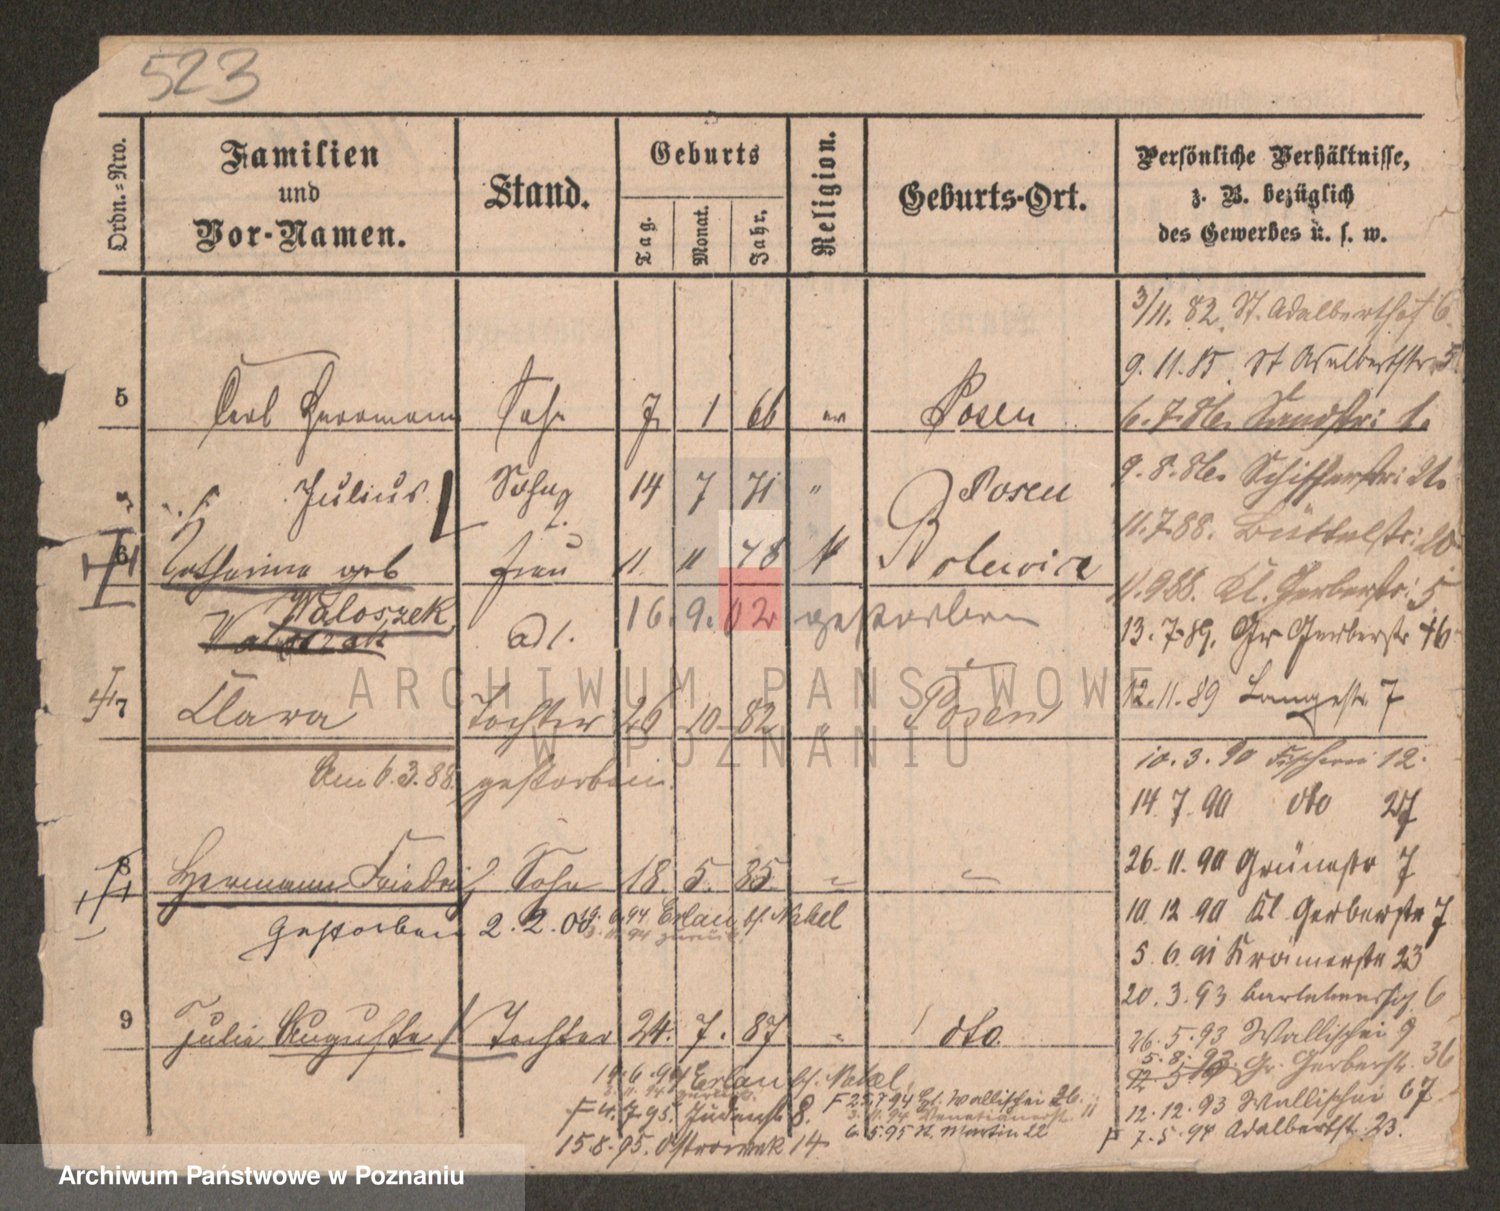 523
Ordn.=Nro.
Familien
und
Vor-Namen.
Stand.
Geburts
Tag.
Monat.
Jahr.
Religion.
Geburts-Ort.
Persönliche Verhältnisse,
z. B. bezüglich
des Gewerbes u. s. w.
3/11. 82. St. Adalberthof 6
9. 11. 85. St Adalbertstr. 5
5 Carl Herrmann Sohn 7 1 66 ev Posen
6. 7. 86. Sandstr: 1.
Julius Sohn 14 7 71 " Posen
9. 8. 86. Schifferstr: 21.
11. 7. 88. Büttelstr: 20
6 Catharina geb Frau 11 11 48 K
11. 9 88. Kl. Gerberstr: 5
Waloszek adl. 16. 9. 02 gestorben
13. 7. 89. Gr Gerberstr 46
7 Clara Tochter 26 10 82 " Posen
12. 11. 89 Langestr. 7
Am 6. 3. 88. gestorben.
10. 3. 90 Fischerei 12.
14. 7. 90 dto 27
8 Hermann Friedrich Sohn 18. 5. 85
26. 11. 90 Grünestr 7
gestorben 2. 2. 00
6. 94 Erlau bf. Nakel
94 zurück
10. 12 90 Kl Gerberstr 7
5. 6. 91 Krämerstr 23
20. 3. 93 6
9 Julie Auguste Tochter 24. 7. 87 " dto.
26. 5. 93 Wallischei 9
5. 8. 93. Gr. Gerberstr. 36
6. 94 Erlau bf. Nakel
zurück
12. 12. 93 Wallischei 67
F 25.7.94 Wallischei 26.
11. 94 Venetianerstr 11
F 4. 7. 95. Judenstr 8.
6. 5. 95 St. Martin 22
F 7. 5. 94 Adalbertstr. 23.
15. 8. 95. Ostrowek 14
ARCHIWUM PAŃSTWOWE
W POZNANIU
Archiwum Państwowe w Poznaniu